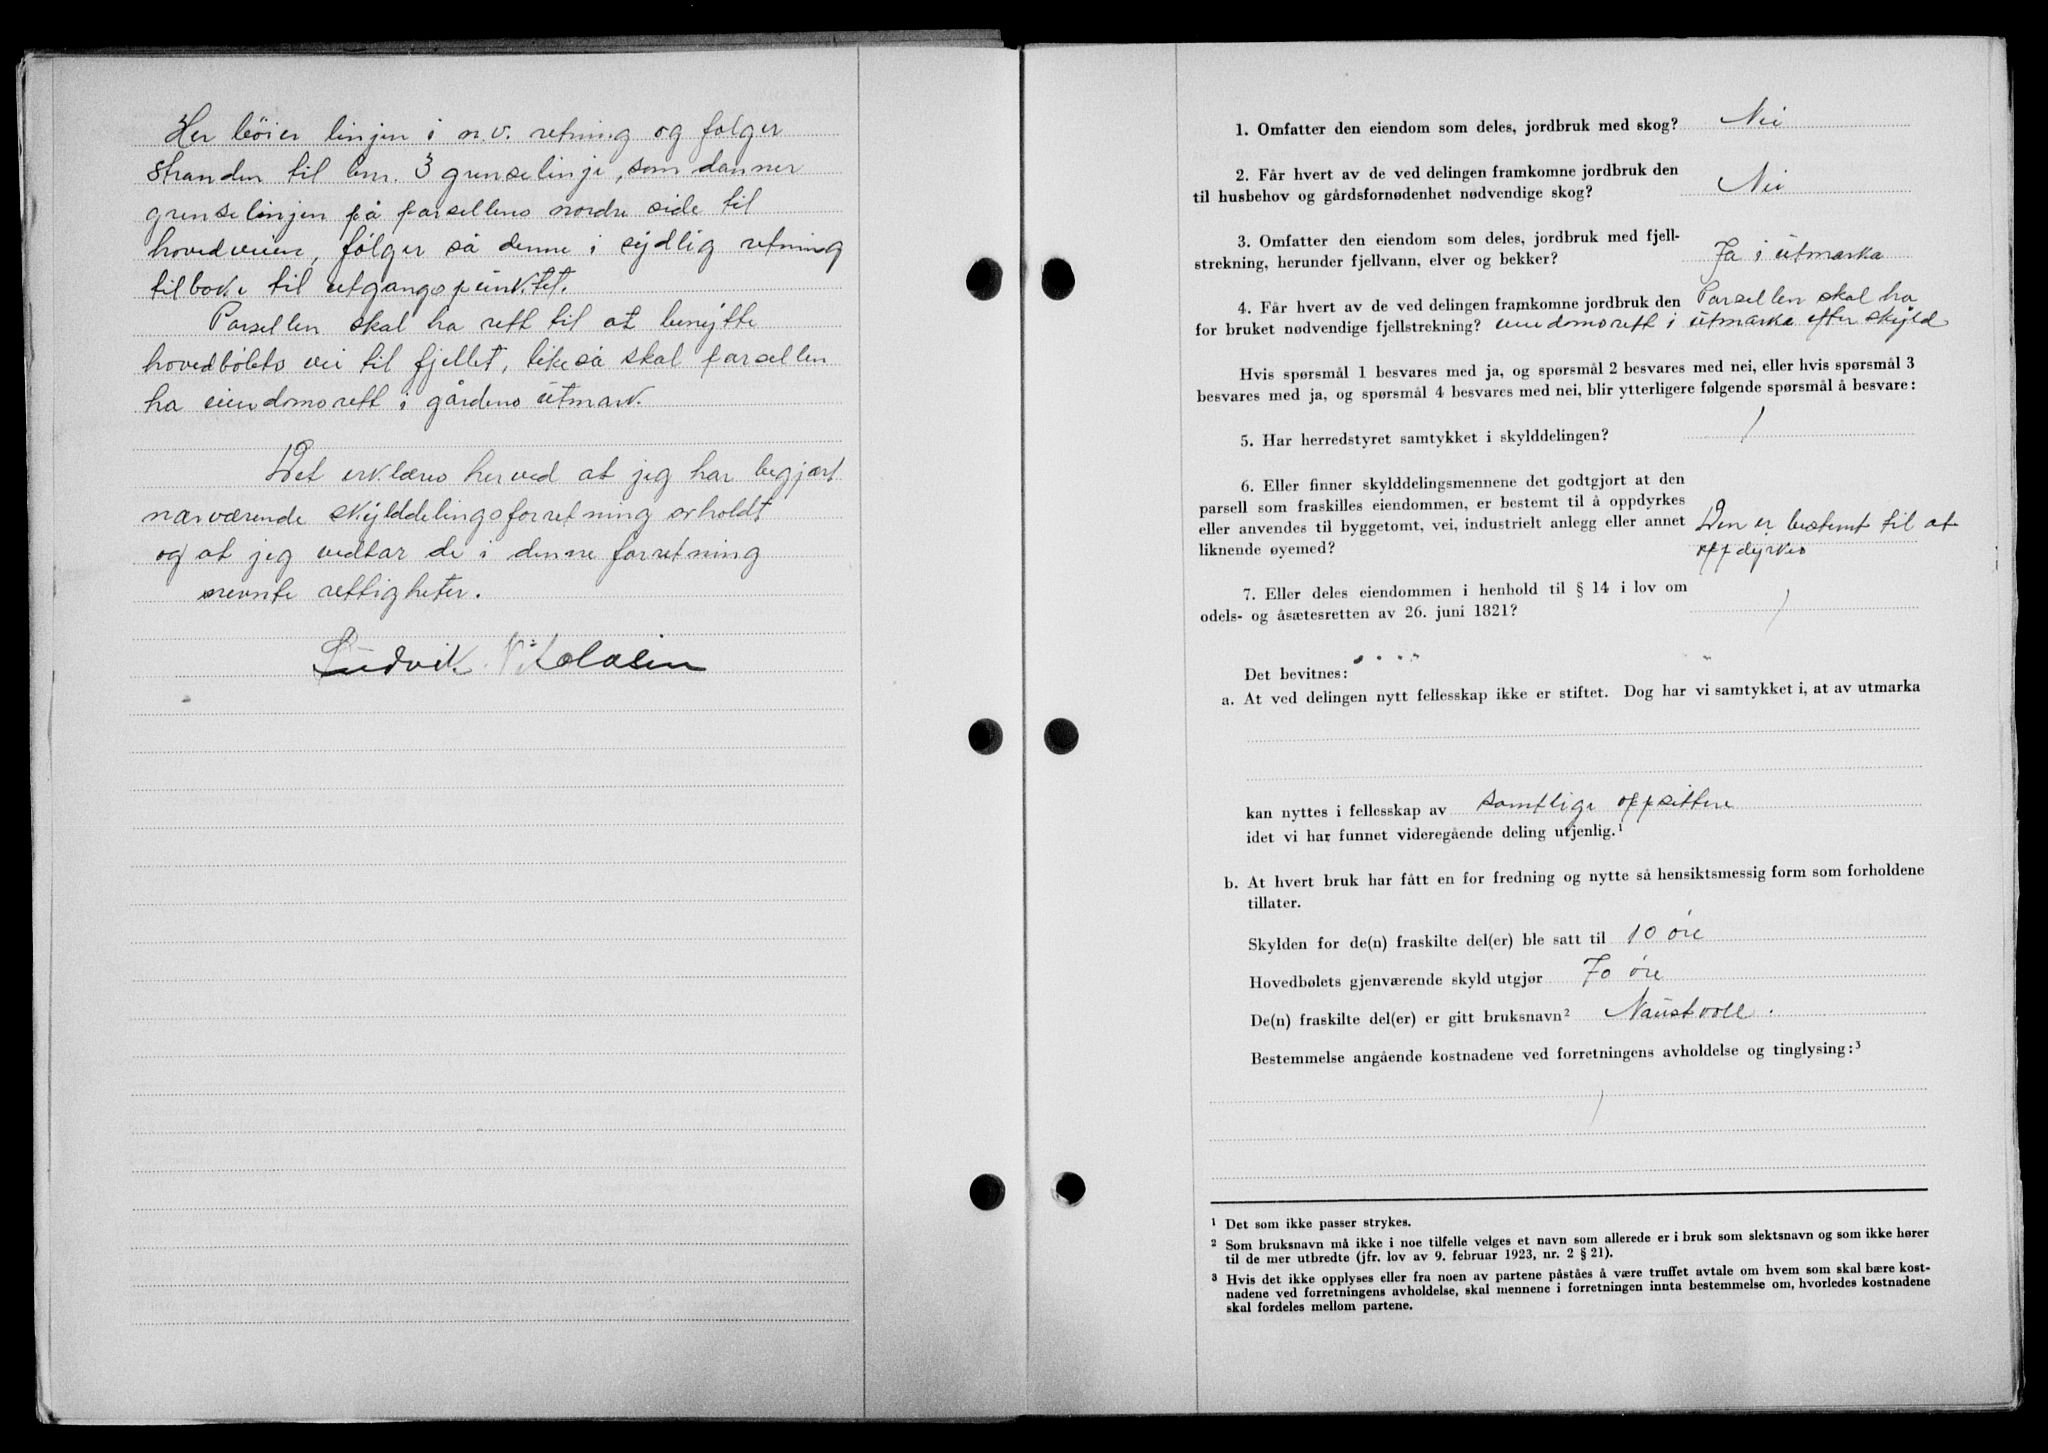 Her böier linjen i n.v. retning og følger
stranden til bnr. 3 grenselinje, som danner
grenselinjen på parsellens nordre side til
hovedveien, følger så denne i sydlig retning
tilbake til utgangspunktet.
Parsellen skal ha rett til at benytte
hovedbølets vei til fjellet, likeså skal parsellen
ha eiendomsrett i gårdens utmark.
Det erklæres herved at jeg har begjært
nærværende skylddelingsforretning avholdt
og at jeg vedtar de i denne forretning
nevnte rettigheter.
Ludvik Nikolaisen
1. Omfatter den eiendom som deles, jordbruk med skog? Nei
2. Får hvert av de ved delingen framkomne jordbruk den
til husbehov og gårdsfornødenhet nødvendige skog? Nei
3. Omfatter den eiendom som deles, jordbruk med fjell-
strekning, herunder fjellvann, elver og bekker? Ja i utmarka
4. Får hvert av de ved delingen framkomne jordbruk den Parsellen skal ha
for bruket nødvendige fjellstrekning? eiendomsrett i utmarka efter skyld
Hvis spørsmål 1 besvares med ja, og spørsmål 2 besvares med nei, eller hvis spørsmål 3
besvares med ja, og spørsmål 4 besvares med nei, blir ytterligere følgende spørsmål å besvare:
5. Har herredstyret samtykket i skylddelingen? /
6. Eller finner skylddelingsmennene det godtgjort at den
parsell som fraskilles eiendommen, er bestemt til å oppdyrkes
eller anvendes til byggetomt, vei, industrielt anlegg eller annet Den er bestemt til at
liknende øyemed? oppdyrkes
7. Eller deles eiendommen i henhold til § 14 i lov om
odels- og åsætesretten av 26. juni 1821? /
Det bevitnes:
a. At ved delingen nytt fellesskap ikke er stiftet. Dog har vi samtykket i, at av utmarka
kan nyttes i fellesskap av samtlige oppsittere
idet vi har funnet videregående deling utjenlig.¹
b. At hvert bruk har fått en for fredning og nytte så hensiktsmessig form som forholdene
tillater.
Skylden for de(n) fraskilte del(er) ble satt til 10 öre
Hovedbølets gjenværende skyld utgjør 70 öre
De(n) fraskilte del(er) er gitt bruksnavn² Naustvoll.
Bestemmelse angående kostnadene ved forretningens avholdelse og tinglysing:³
/
¹ Det som ikke passer strykes.
² Som bruksnavn må ikke i noe tilfelle velges et navn som allerede er i bruk som slektsnavn og som ikke hører
til de mer utbredte (jfr. lov av 9. februar 1923, nr. 2 § 21).
³ Hvis det ikke opplyses eller fra noen av partene påståes å være truffet avtale om hvem som skal bære kost-
nadene ved forretningens avholdelse, skal mennene i forretningen innta bestemmelse om, hvorledes kostnadene
skal fordeles mellom partene.